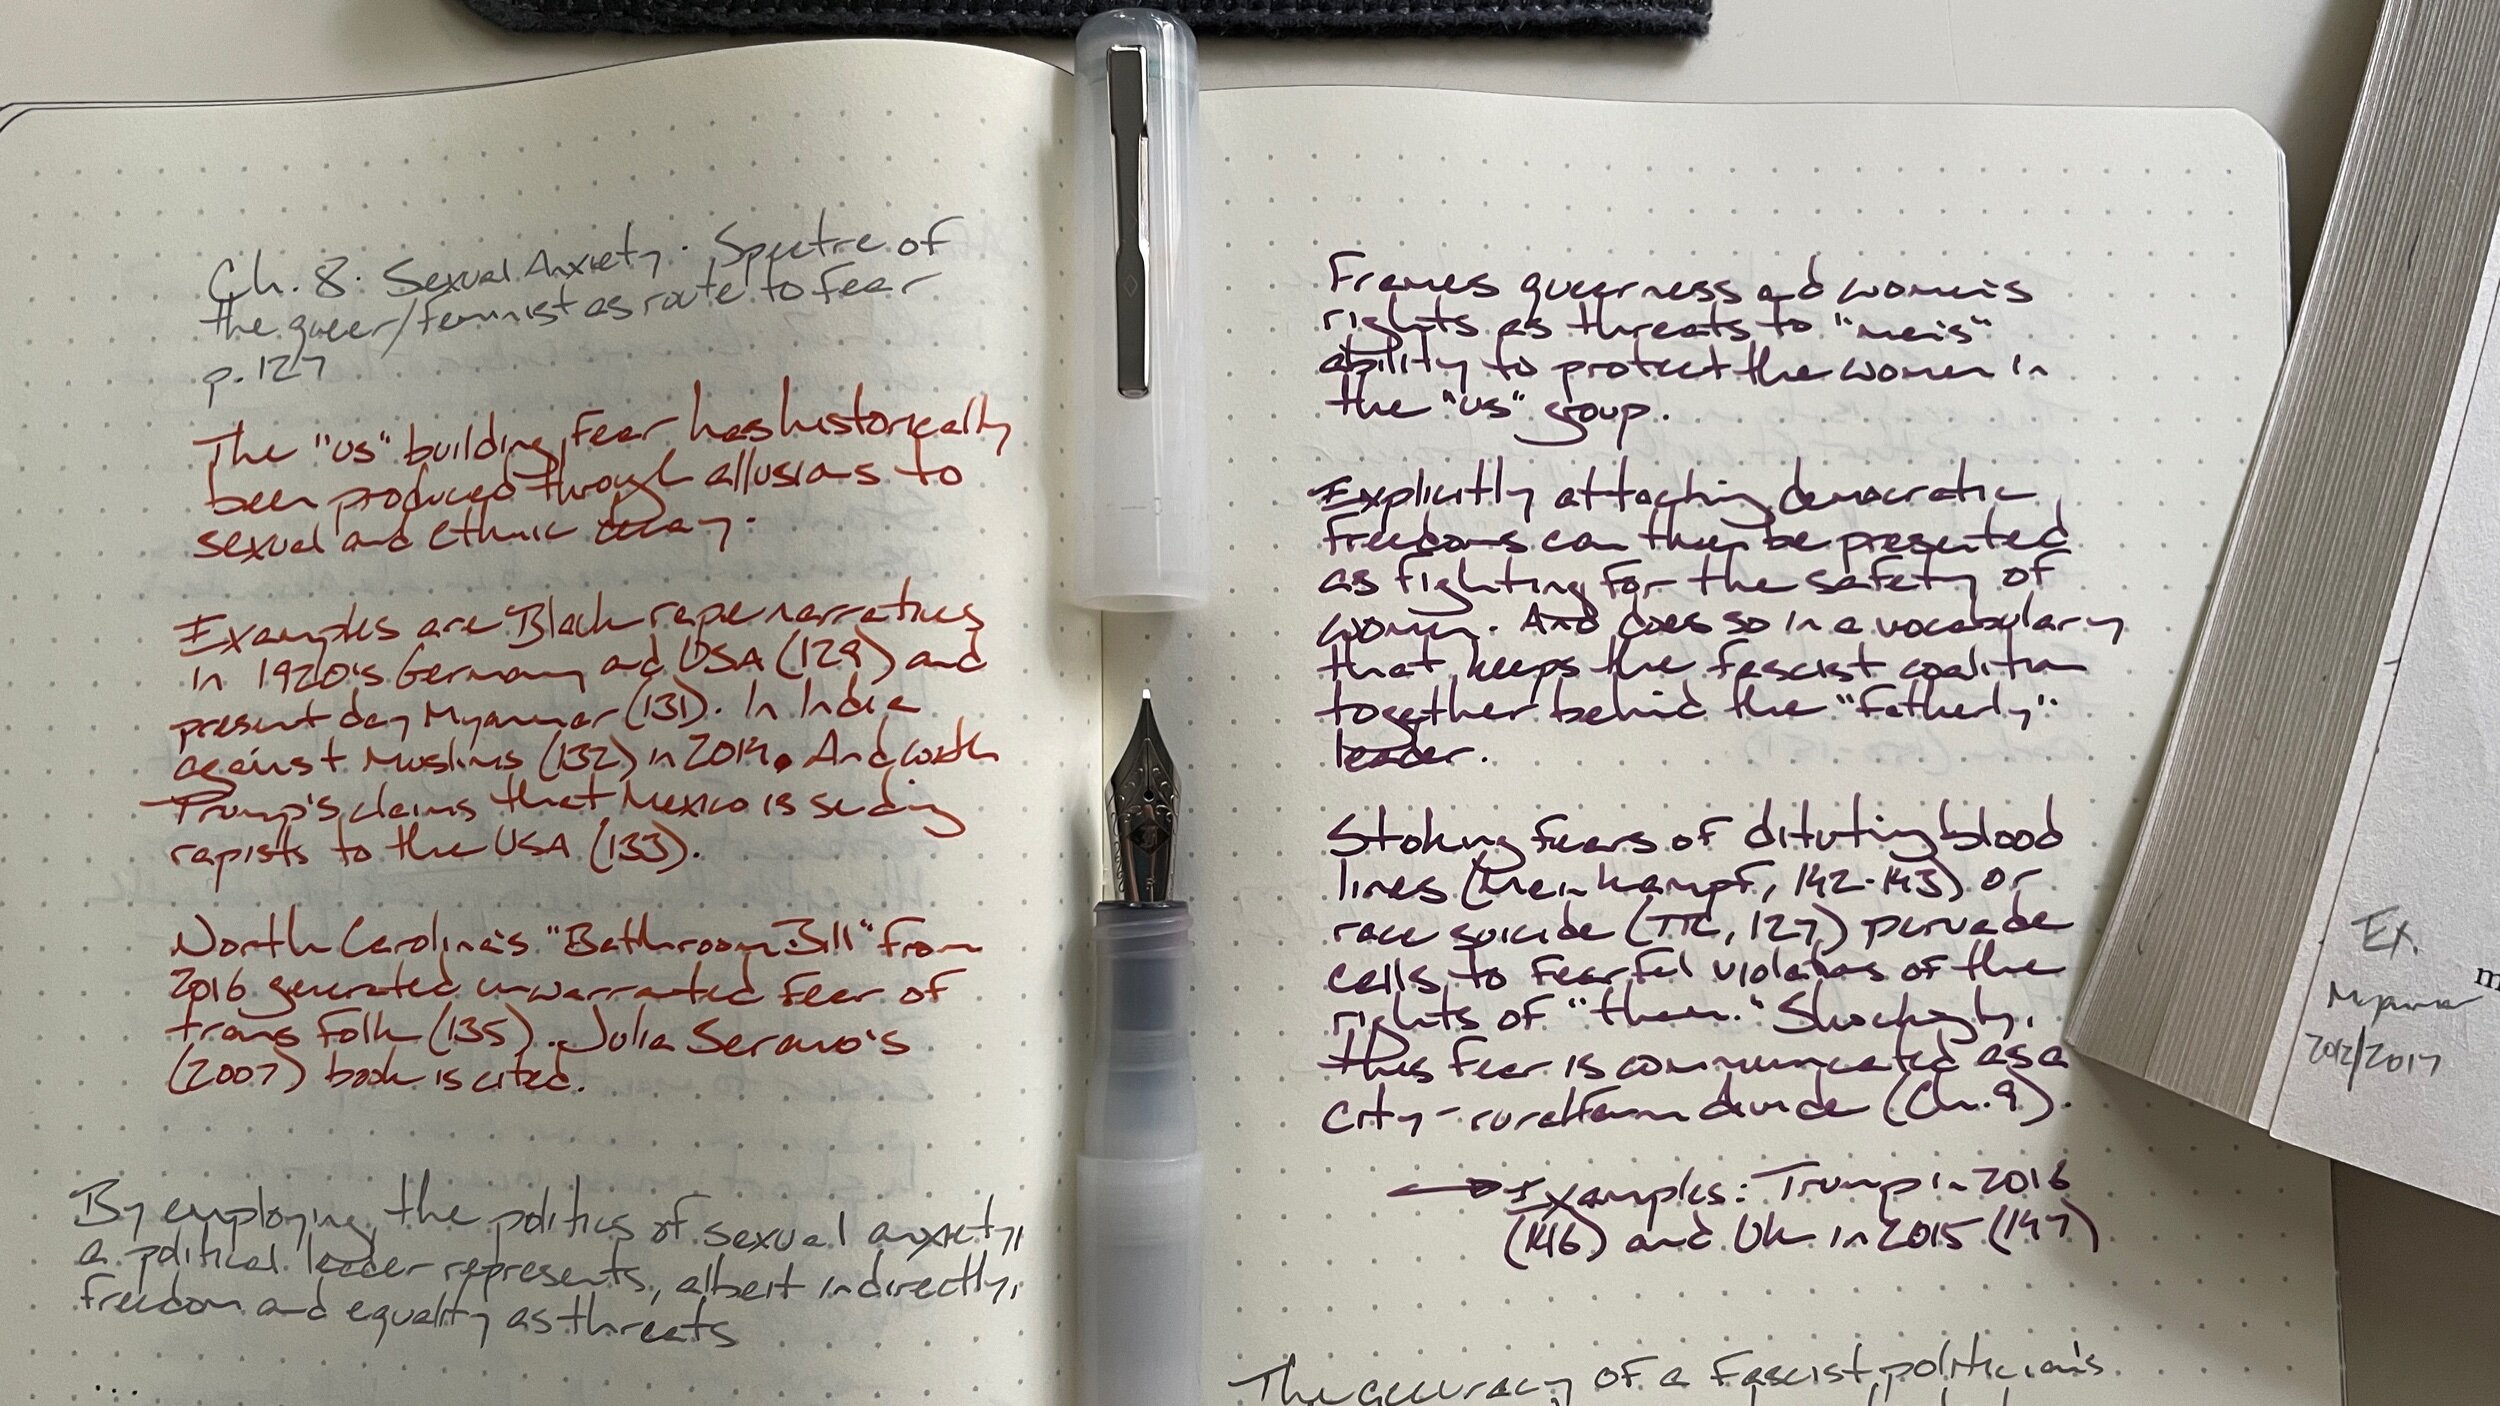 Ch. 8: Sexual Anxiety: Spectre of
the queer/feminist as route to fear
p. 127
The "us" building fear has historically
been produced through allusions to
sexual and ethnic decay.
Examples are Black rape narratives
in 1920's Germany and USA (129) and
present day Myanmar (131). In India
against Muslims (132) in 2014. And worth
Trump's claims that Mexico is sending
rapists to the USA (133).
North Carolina's "Bathroom Bill" from
2016 generated unwarranted fear of
trans folk (135). Julia Serano's
(2007) book is cited.
By employing the politics of sexual anxiety,
a political leader represents, albeit indirectly,
freedom and equality as threats
...
Frames queerness and women's
rights as threats to "men's"
ability to protect the women in
the "us" group.
Explicitly attaching democratic
freedoms can then be presented
as fighting for the safety of
women. And does so in a vocabulary
that keeps the fascist coalition
together behind the "fatherly"
leader.
Stoking fears of diluting blood
lines (Mein Kampf, 142-143) or
race suicide (127) pervade
calls to fearful violations of the
rights of "them." Shockingly,
this fear is communicated as a
city-rural/farm divide (Ch. 9).
→ Examples: Trump in 2016
(146) and UK in 2015 (147)
The accuracy of a fascist politician's
Ex.
Myanmar
2012/2017
m